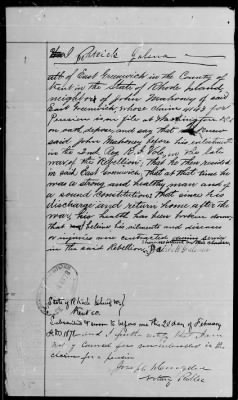 I Patrick
of East Greenwich in the County of
Kent in the State of Rhode Island,
neighbor of John Mahoney of said
East Greenwich, whose claim for
Pension is on file at Washington D.C.
on oath, depose, and say that I knew
said John Mahoney before his enlistment
in the 2nd Reg. R.I. Vols, in the late
war of the Rebellion, That he then resided
in said East Greenwich, That at that time he
was a strong and healthy man and of
a sound Constitution, that since his
discharge and return home after the
war, his health has been broken down,
that I believe his ailments and diseases
or injuries were contracted during service
in the said Rebellion,
State of Rhode Island
Kent Co.
Subscribed & sworn to before me this 28 day of February
and I further certify that I am
not of Counsel nor interested in the
claim for a pension
Notary Public